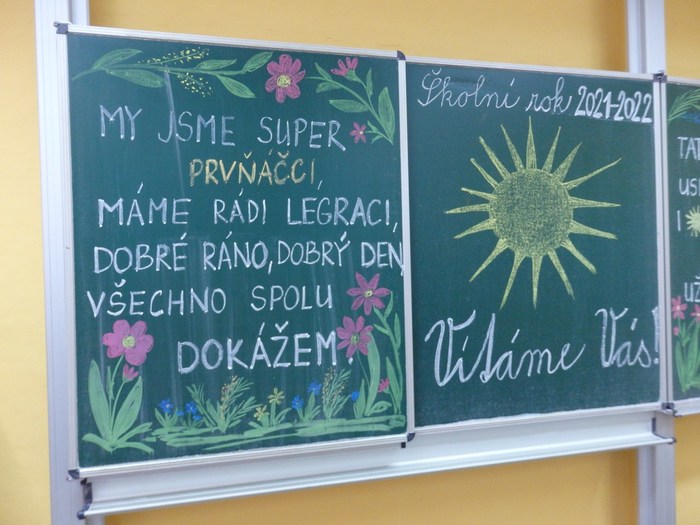 MY JSME SUPER
PRVŇÁČCI,
MÁME RÁDI LEGRACI,
DOBRÉ RÁNO, DOBRÝ DEN,
VŠECHNO SPOLU
DOKÁŽEM
Školní rok 2021-2022
Vítáme Vás!